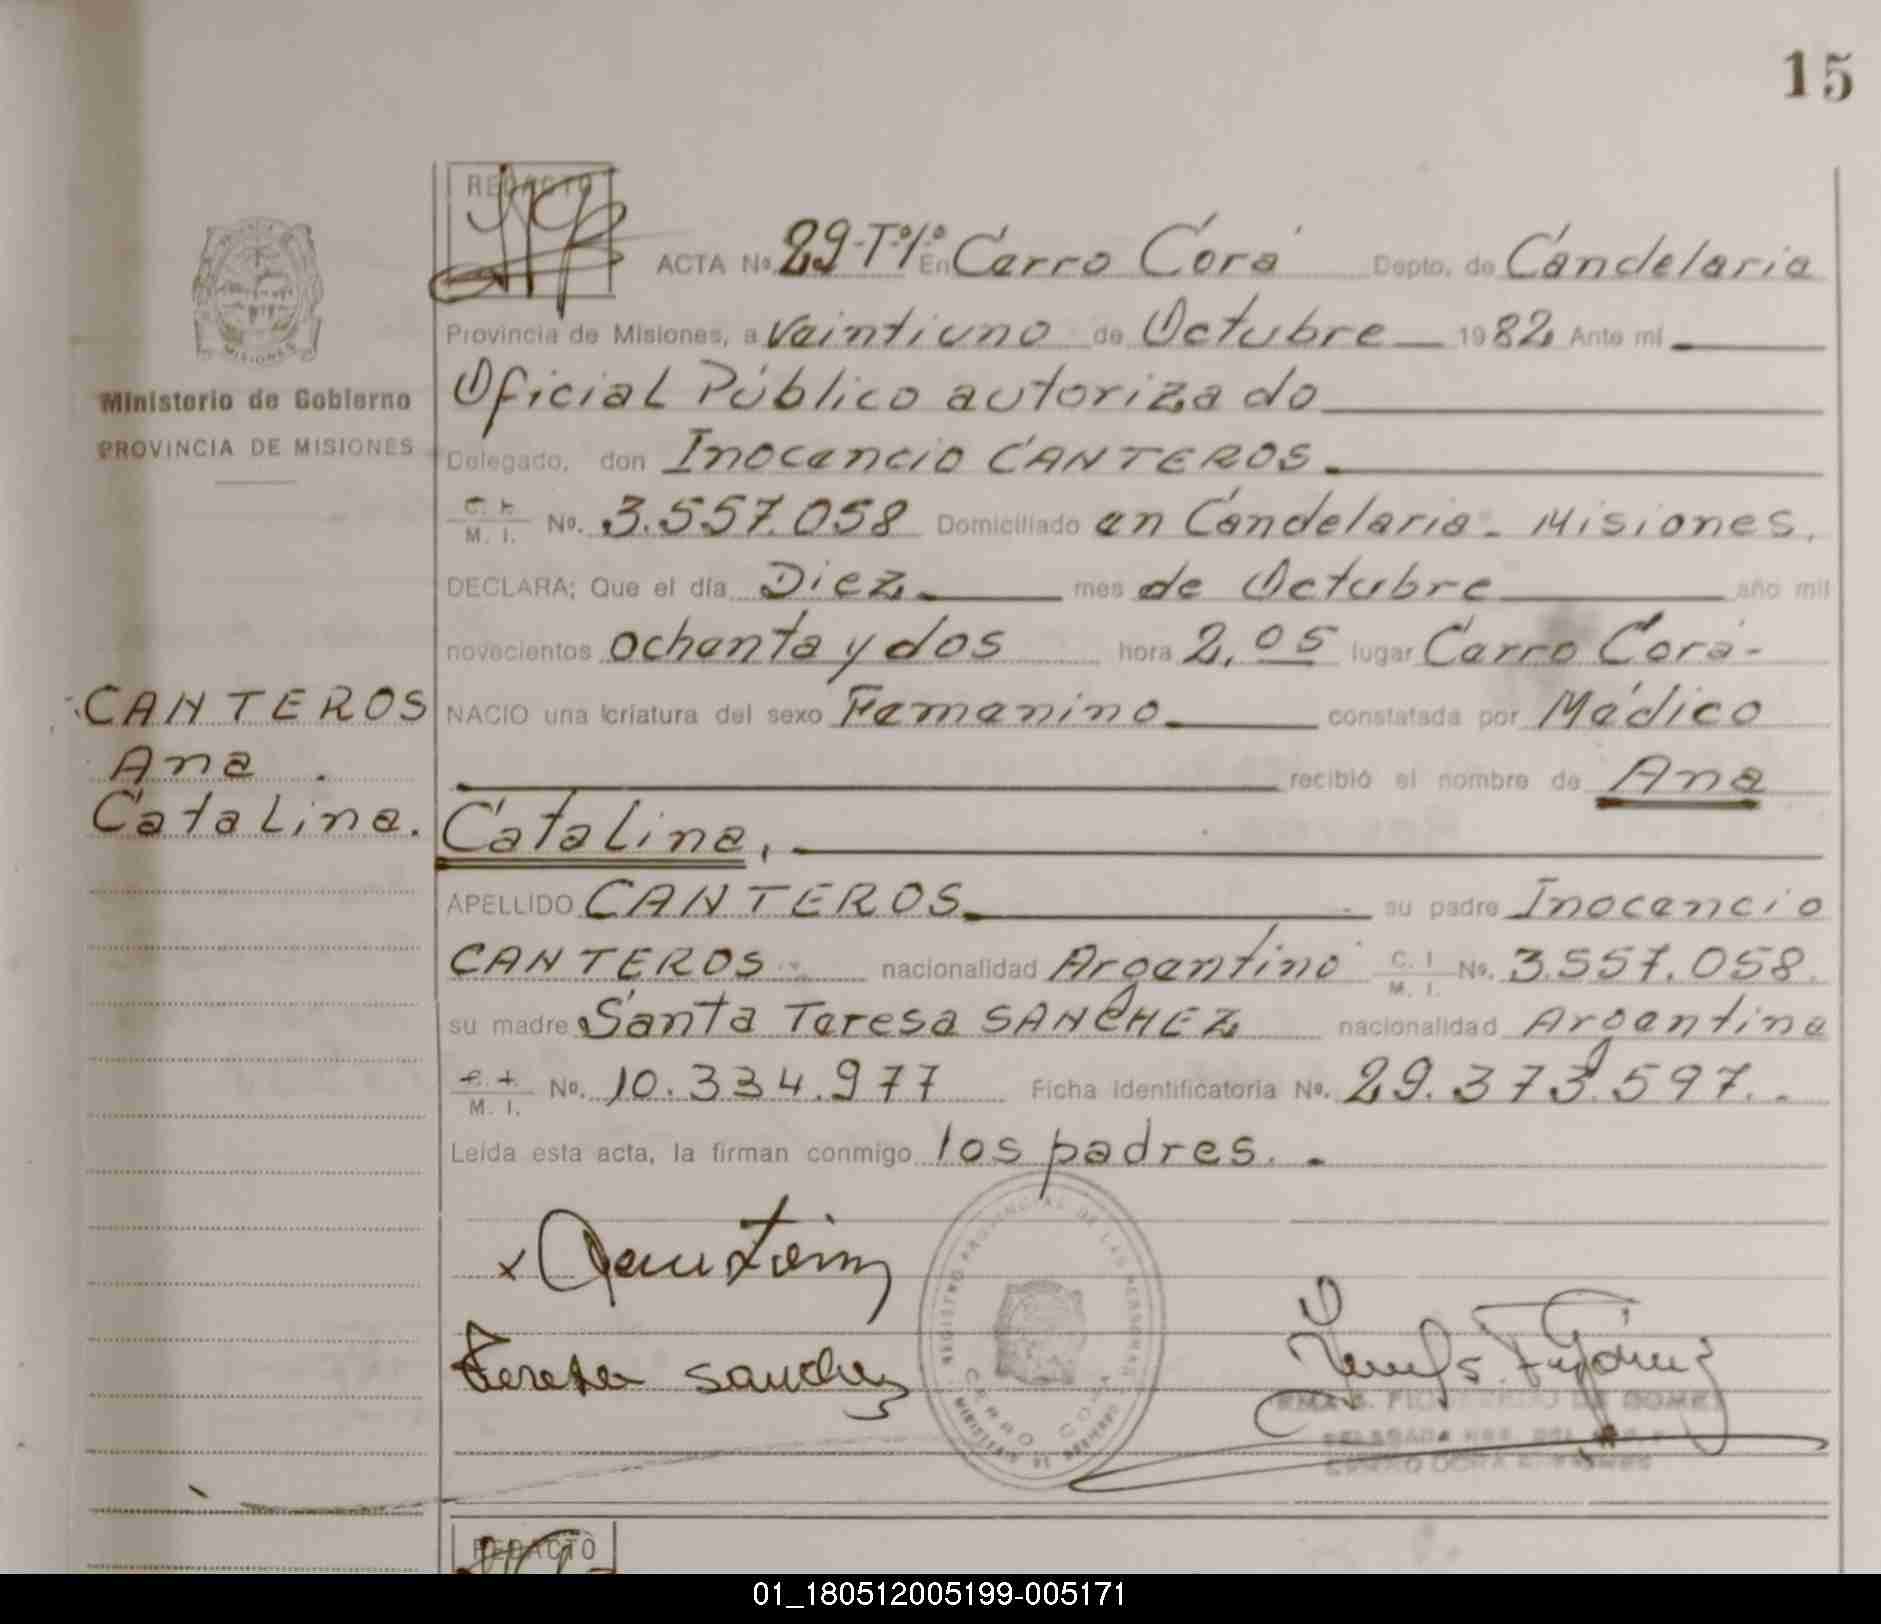 15
REDACTO
ACTA No. 29-Tº1º En Cerro Corá Depto. de Candelaria
Provincia de Misiones, a Veintiuno de Octubre 1982 Ante mi
Oficial Público autorizado
Delegado, don Inocencio CANTEROS.
M. I. No. 3.557.058 Domiciliado en Candelaria - Misiones.
DECLARA; Que el día Diez mes de Octubre año mil
novecientos ochenta y dos hora 2,05 lugar Cerro Corá-
NACIO una criatura del sexo Femenino constatada por Médico
recibió el nombre de Ana
Catalina,
APELLIDO CANTEROS su padre Inocencio
CANTEROS nacionalidad Argentino C. I. M. I. No. 3.557.058.
su madre Santa Teresa SANCHEZ nacionalidad Argentina
C. I. M. I. No. 10.334.977 Ficha identificatoria No. 29.373.597.-
Leída esta acta, la firman conmigo los padres.-
MISIONES
Ministerio de Gobierno
PROVINCIA DE MISIONES
CANTEROS
Ana
Catalina.
Teresa Sanchez
REGISTRO PROVINCIAL DE LAS PERSONAS
CERRO CORA
REDACTO
01_180512005199-005171